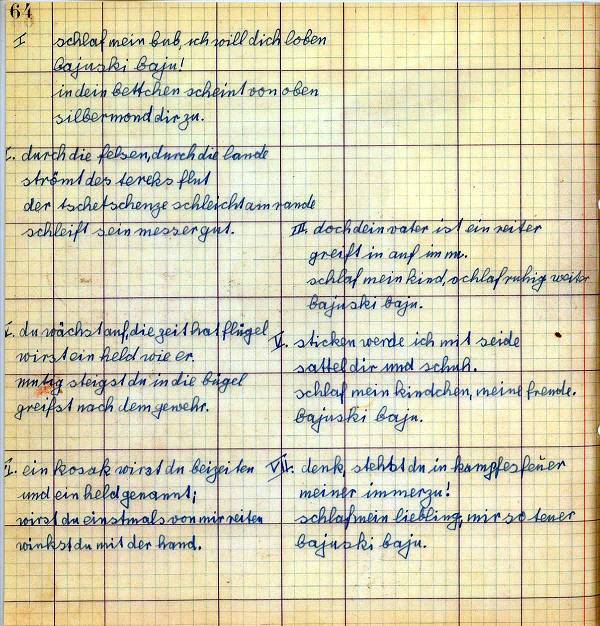 64
I schlaf mein bub, ich will dich loben
bajuski baju!
in dein bettchen scheint von oben
silbermond dir zu.
I. durch die felsen, durch die lande
strömt des tereks flut
der tschetschenze schleicht am rande
schleift sein messer gut.
III. doch dein vater ist ein reiter
greift in auf imm.
schlaf mein kind, schlaf ruhig weiter
bajuski baju.
I. du wächst auf, die zeit hat flügel
wirst ein held wie er.
mutig steigst du in die bügel
greifst nach dem gewehr.
V. sticken werde ich mit seide
sattel dir und schuh.
schlaf mein kindchen, meine freude.
bajuski baju.
I. ein kosak wirst du beizeiten
und ein held genannt;
wirst du einstmals von mir reiten
winkst du mit der hand.
VII. denk, stehst du in kampfesfeuer
meiner immerzu!
schlaf mein liebling, mir so teuer
bajuski baju.